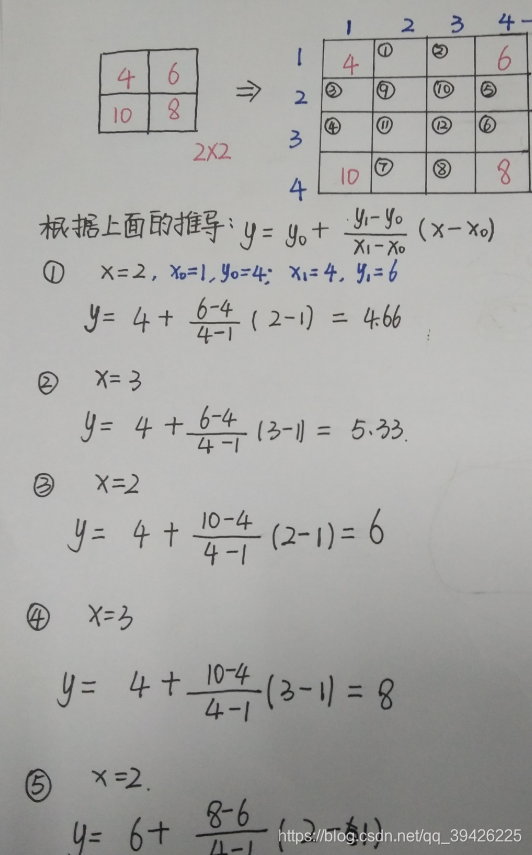 1 2 3 4
4 6 ⇒ 1 4 ① ② 6
2 ③ ⑨ ⑩ ⑤
10 8 3 ④ ⑪ ⑫ ⑥
2×2 4 10 ⑦ ⑧ 8
根据上面的推导: y = y₀ + (y₁-y₀)/(x₁-x₀) (x-x₀)
① x=2, x₀=1, y₀=4; x₁=4, y₁=6
y= 4 + (6-4)/(4-1) (2-1) = 4.66
② x=3
y= 4 + (6-4)/(4-1) (3-1) = 5.33.
③ x=2
y= 4 + (10-4)/(4-1) (2-1) = 6
④ x=3
y= 4 + (10-4)/(4-1) (3-1) = 8
⑤ x=2.
y= 6 + (8-6)/(4-1) (2-1)
https://blog.csdn.net/qq_39426225